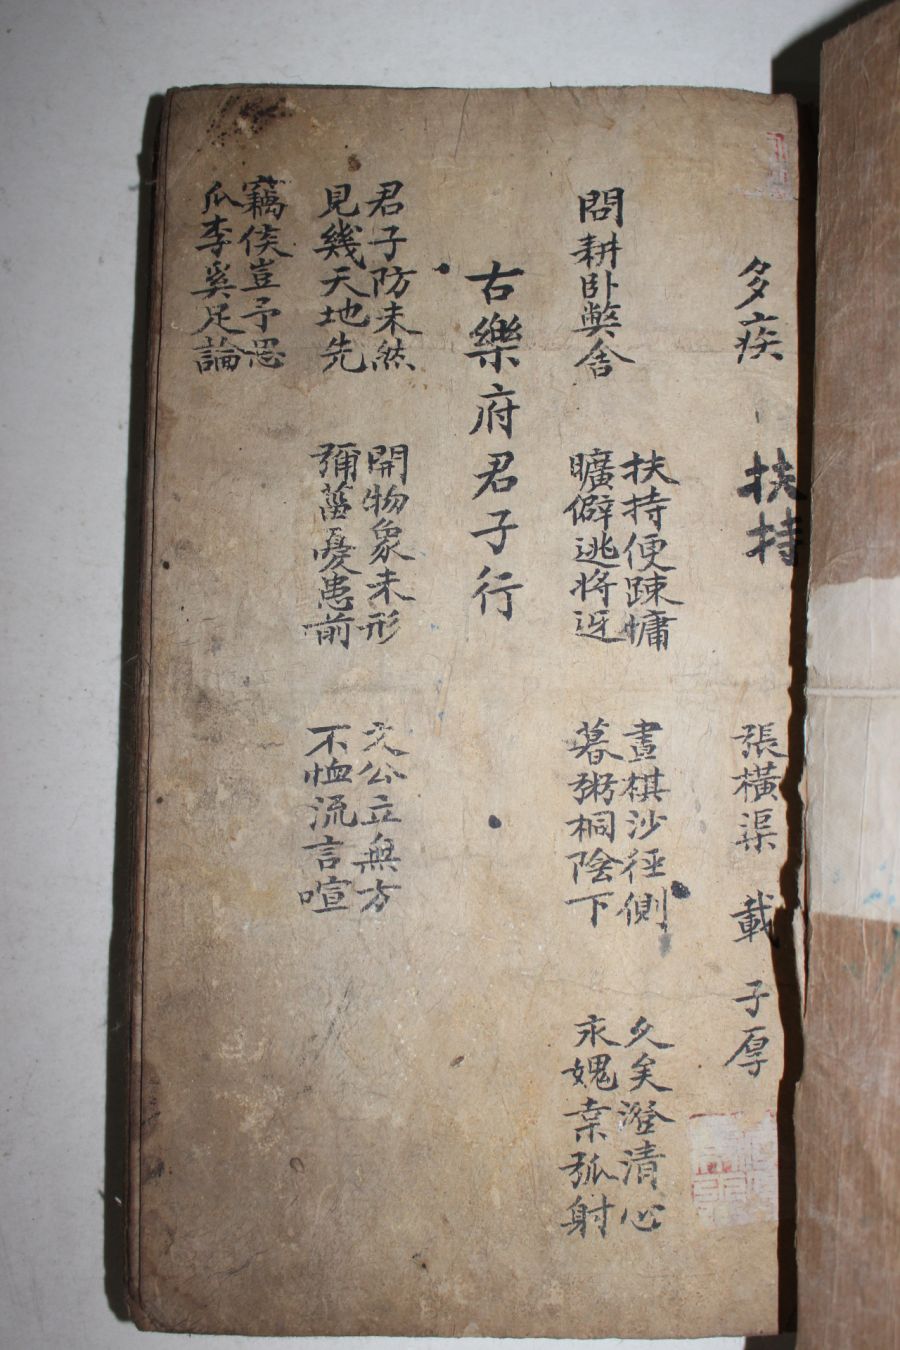 多疾 扶持 張橫渠 載 子厚
問耕卧獘舍
扶持便踈慵
曠僻逃將迓
晝棋沙徑側
暮粥桐陰下
久矣澄清心
永媿棄弧射
古樂府君子行
君子防未然
見幾天地先
開物象未形
彌菑憂患前
文公立無方
不恤流言喧
竊侯豈予思
瓜李奚足論